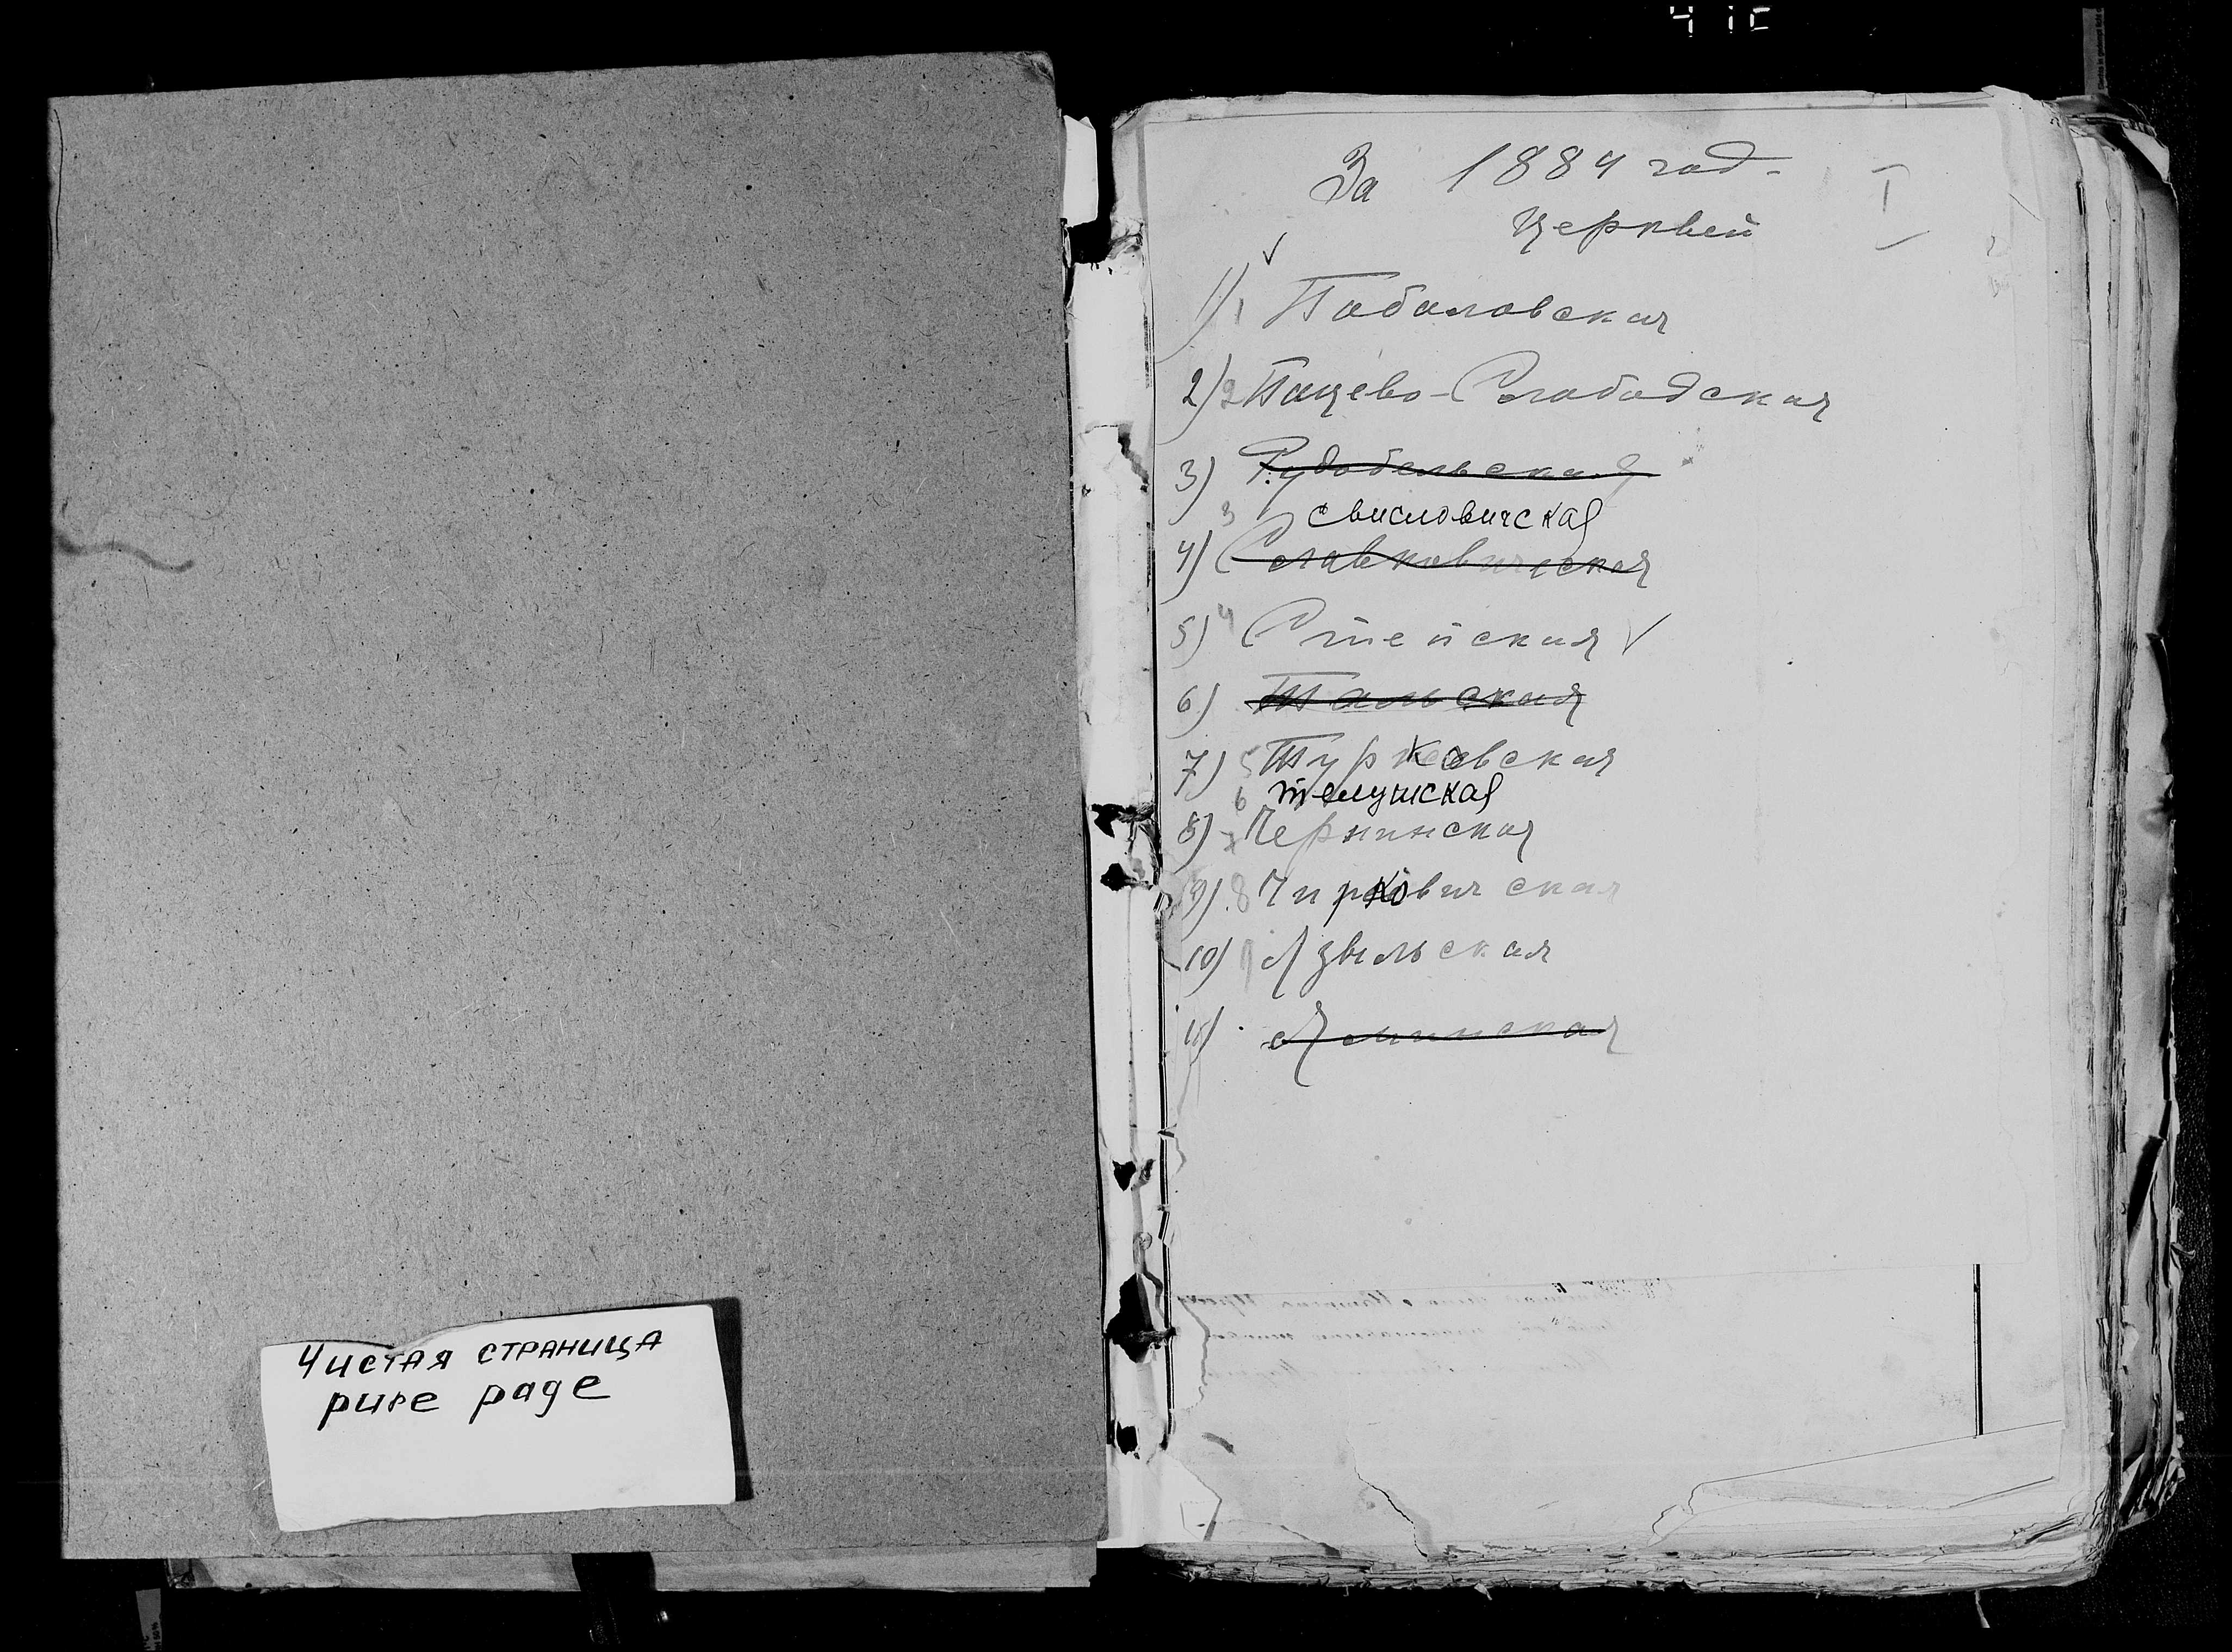 Чистая страница
pure page
За 1884 год
Церквей
I
1) 1 Поболовская
2) 2 Пацево-Слободская
3) Рудобельская
3 свисловичская
4) Славковичская
5) 4 Степская
6) Тальская
7) 5 Турковская
6 телушская
8) 7 Чернинская
9) 8 Чирковичская
10) 9 Язвильская
11) Яминская